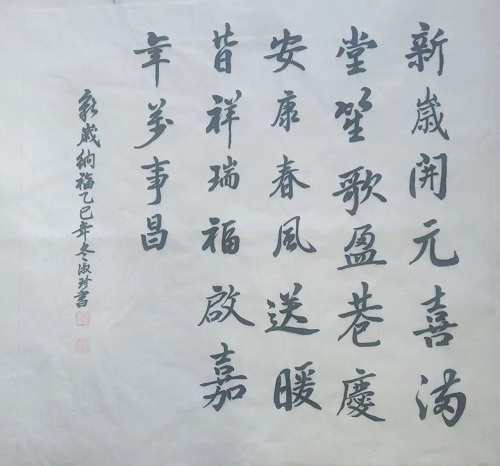 新歲開元喜滿
堂笙歌盈巷慶
安康春風送暖
皆祥瑞福啟嘉
年萬事昌
新歲納福乙巳年冬淑珍書